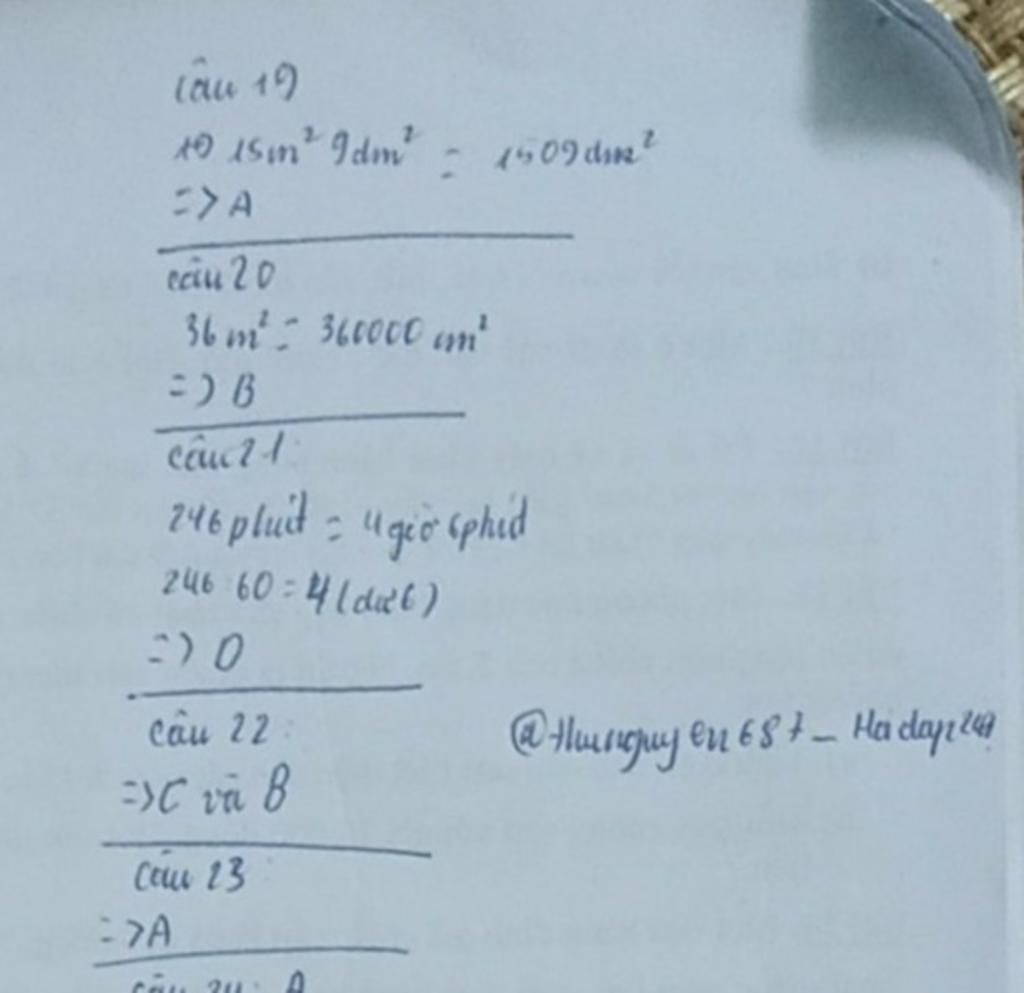 Câu 19
19 15m² 9dm² = 1509dm²
=> A
câu 20
36m² = 360000 cm²
=> B
câu 21
246 phút = 4 giờ 6 phút
246:60 = 4 (dư 6)
=> D
câu 22:
@thunguyen687_Hoidap247
=> C và B
câu 23:
=> A
câu 24: A